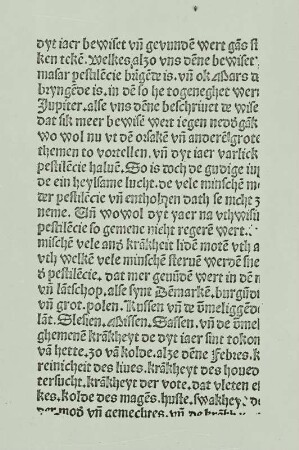 dyt iaer bewiset vñ gevundē wert gās
ken tekē. Welkes, alzo vns dēne bewiset
masar pestilēcie brīgēde is. vñ ok Mars
bryngēde is. in dē so he togeneghet wer
Jupiter. alse vns dēne beschriuet de wise
dat sik meer bewise wert iegen
wo wol nu vt dē orsakē vñ anderē grote
themen to vortellen. vñ dyt iaer varlick
pestilēcie haluē. So is doch de gudige
de ein heylsame lucht. de vele minschē
der pestilēcie vñ entholdē dath se nicht
neme. Vñ wowol dyt yaer na vthwisi
pestilēcie so gemene nicht regerē wert.
mischē vele ans krākheit lidē motē vth
vth welkē vele minschē steruē werdē
d pestilēcie. dat mer gevūdē wert in dē
vñ lātschop. alse synt Dēmarkē. burgūdi
vñ grot. polen. Russen vñ de
lāt. Slesien. Missen. Sassen. vñ de
ghemenē krākheyt de dyt iaer sint
vā hette. zo vā kolde. alze dēne Febres.
reinicheit des liues. krākheyt des houed
tersucht. krākheyt der vote. dat vleten
kes. kolde des magēs. huste. swakhey
der mod vñ gemechtes. vñ de